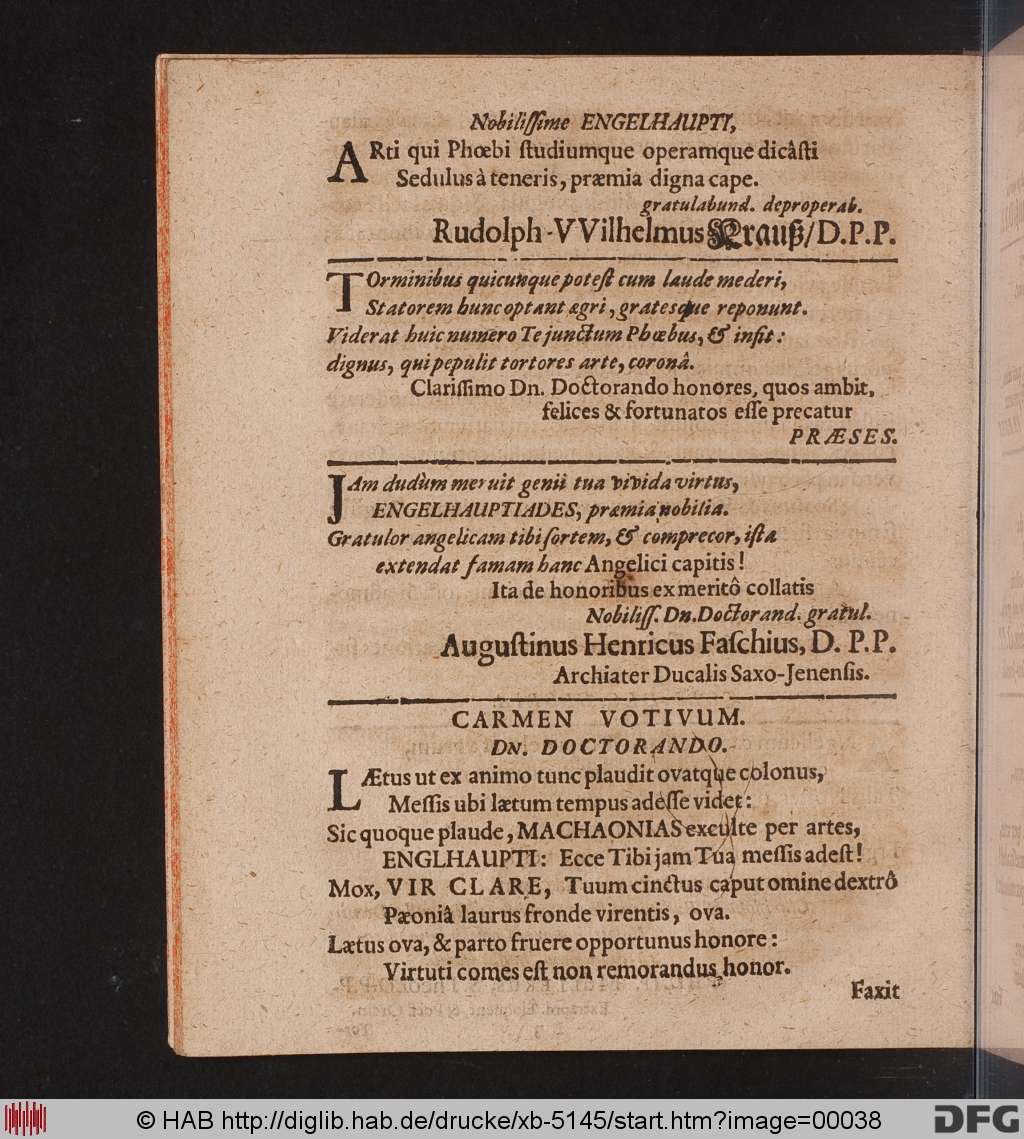 Nobiliſſime ENGELHAUPTI,
ARti qui Phœbi ſtudiumque operamque dicâſti
Sedulus à teneris, præmia digna cape.
gratulabund. deproperab.
Rudolph-VVilhelmus Krauß/ D.P.P.
TOrminibus quicunque poteſt cum laude mederi,
Statorem hunc optant ægri, grates que reponunt.
Viderat huic numero Te junctum Phœbus, & inſit:
dignus, qui pepulit tortores arte, coronâ.
Clariſſimo Dn. Doctorando honores, quos ambit,
felices & fortunatos eſſe precatur
PRÆSES.
JAm dudùm meruit genii tua vivida virtus,
ENGELHAUPTIADES, præmia nobilia.
Gratulor angelicam tibi ſortem, & comprecor, iſta
extendat famam hanc Angelici capitis!
Ita de honoribus ex meritô collatis
Nobiliſſ. Dn. Doctorand. gratul.
Auguſtinus Henricus Faſchius, D. P.P.
Archiater Ducalis Saxo-Jenenſis.
CARMEN VOTIVUM.
DN. DOCTORANDO.
LÆtus ut ex animo tunc plaudit ovatque colonus,
Meſſis ubi lætum tempus adeſſe videt:
Sic quoque plaude, MACHAONIAS exculte per artes,
ENGLHAUPTI: Ecce Tibi jam Tua meſſis adeſt!
Mox, VIR CLARE, Tuum cinctus caput omine dextrô
Pæoniâ laurus fronde virentis, ova.
Lætus ova, & parto fruere opportunus honore:
Virtuti comes eſt non remorandus honor.
Faxit
© HAB http://diglib.hab.de/drucke/xb-5145/start.htm?image=00038
DFG